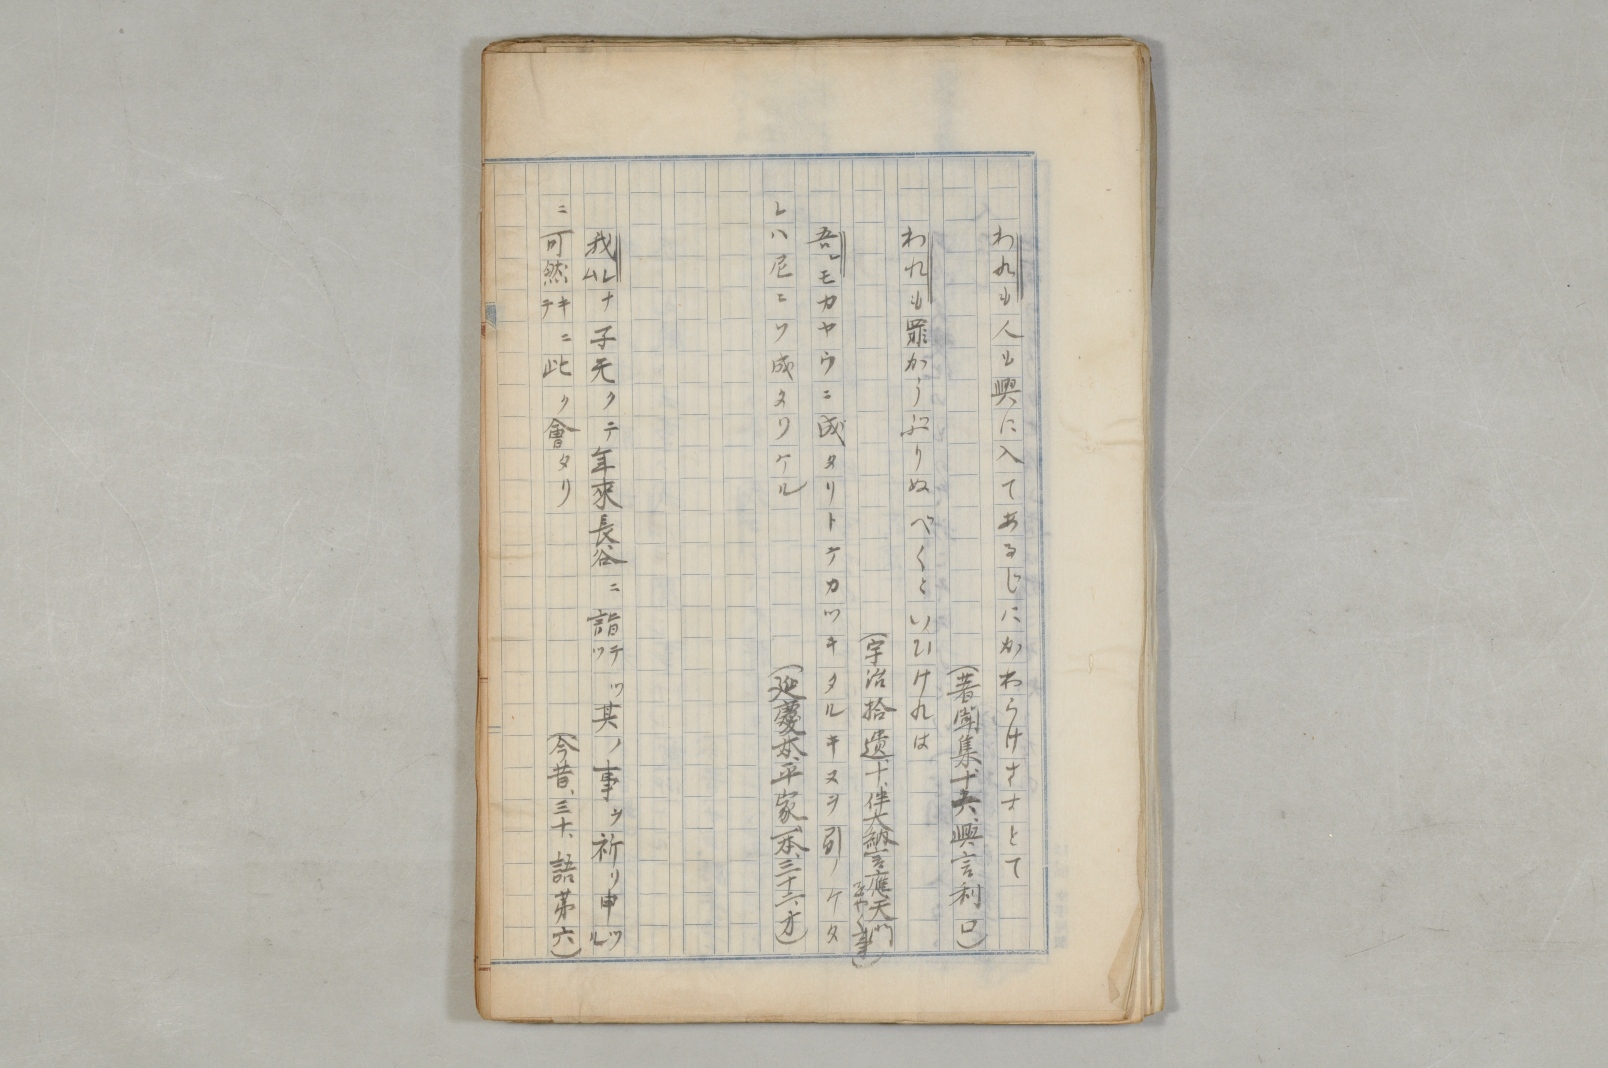 われも人も興に入てあるじにかわらけさすとて
(著聞集十六、興言利口)
われも罪かうぶりぬべくといひけれは
(宇治拾遺十、伴大納言應天門をやく事)
吾レモカヤウニ成タリトテカツキタルキヌヲ引ノケタ
レハ尼ニソ成タリケル
(延慶本平家(本、三十六、オ)
我レ子无クテ年來長谷ニ詣テツツ其ノ事ヲ祈リ申ツル
ニ可然キニテ此ク會タリ
(今昔、三十、語第六)